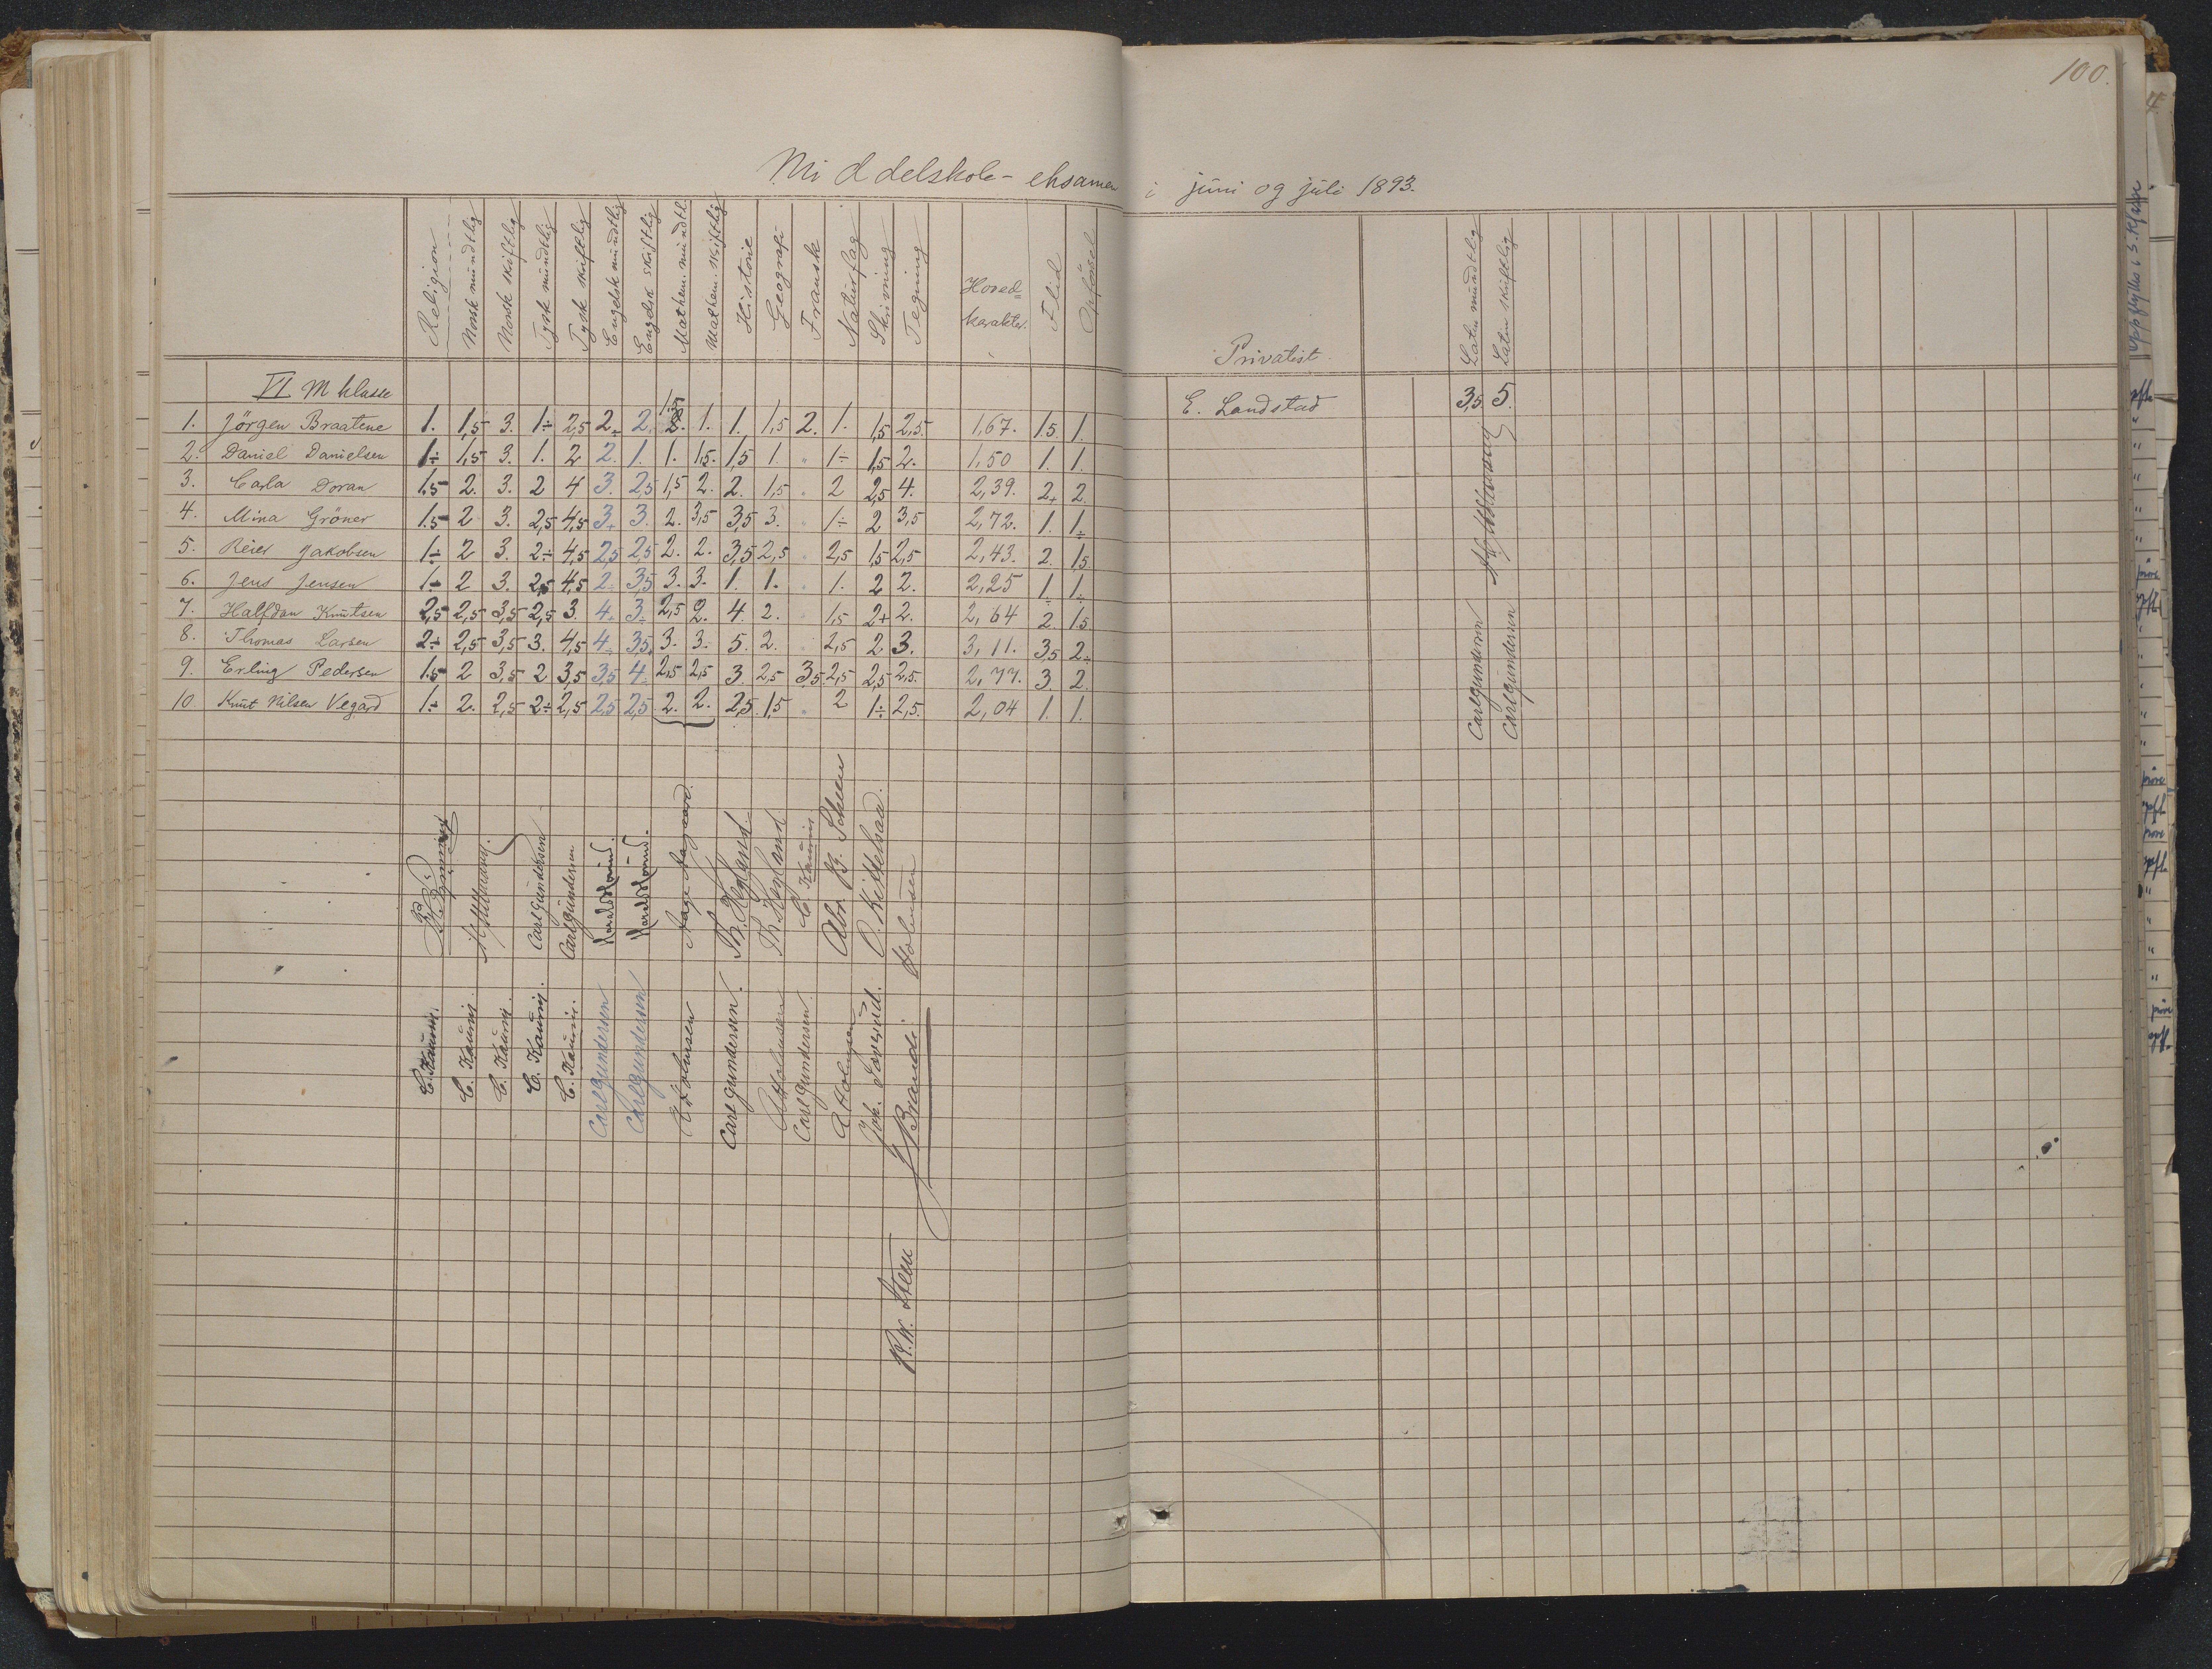 100.
Middelskole-eksamen i juni og juli 1893.
Religion Norsk mundtlig Norsk skriftlig Tysk mundtlig Tysk skriftlig Engelsk mundtlig Engelsk skriftlig Mathem. mundtl. Mathem. skriftlig Historie Geografi Fransk Naturfag Skrivning Tegning Hoved= karakter. Flid Opførsel
VI M klasse
1. Jörgen Braatene 1. 1,5 3. 1÷ 2,5 2÷ 2. 1,5 2. 1. 1. 1,5 2. 1. 1,5 2,5. 1,67. 1.5. 1.
2. Daniel Danielsen 1÷ 1,5 3. 1. 2 2. 1. 1. 1,5. 1,5 1. " 1÷ 1,5 2. 1,50 1. 1.
3. Carla Doran 1.5 2. 3. 2 4 3. 2,5 1,5 2. 2. 1,5 . 2 2,5 4. 2,39. 2+ 2.
4. Mina Gröner 1.5 2 3. 2,5 4,5 3+ 3. 2. 3,5 3,5 3. . 1÷ 2 3,5 2,72. 1. 1÷
5. Reier Jakobsen 1÷ 2 3. 2÷ 4,5 2,5 2,5 2. 2. 3,5 2,5 . 2,5 1,5 2,5 2,43. 2. 1.5
6. Jens Jensen 1÷ 2 3. 2,5 4,5 2÷ 3,5 3. 3. 1. 1. . 1. 2 2. 2,25 1÷ 1÷
7. Halfdan Knutsen 2,5 2,5 3,5 2,5 3. 4. 3÷ 2,5 2. 4. 2. 1,5 2+ 2. 2,64 2. 1.5
8. Thomas Larsen 2÷ 2,5 3,5 3. 4,5 4÷ 3,5. 3. 3. 5. 2. . 2,5 2. 3. 3,11. 3,5 2÷
9. Erling Pedersen 1.5 2 3,5 2 3,5 3,5 4. 2,5 2,5 3. 2,5 3,5. 2,5 2,5 2,5. 2,77. 3. 2.
10 Knut Nilsen Vegard 1÷ 2. 2,5 2÷ 2,5 2,5 2,5. 2. 2. 2,5 1,5 . 2 1÷ 2,5. 2,04 1. 1.
Carl Gundersen
Carl Gundersen
Aage Aagaard.
Th. Hegland
Th. Hegland
Abr. B. Scheen
O. Kittelsaa.
Holmsen
Carl Gundersen
Carl Gundersen
A Holmsen
Carl Gundersen.
A Holmsen
Carl Gundersen.
A Holmsen
J Brandi
R. W. Steen
Privatist
Latin mundtlig Latin skriftlig
E. Landstad 3,5. 5.
Carl Gundersen
Carl Gundersen